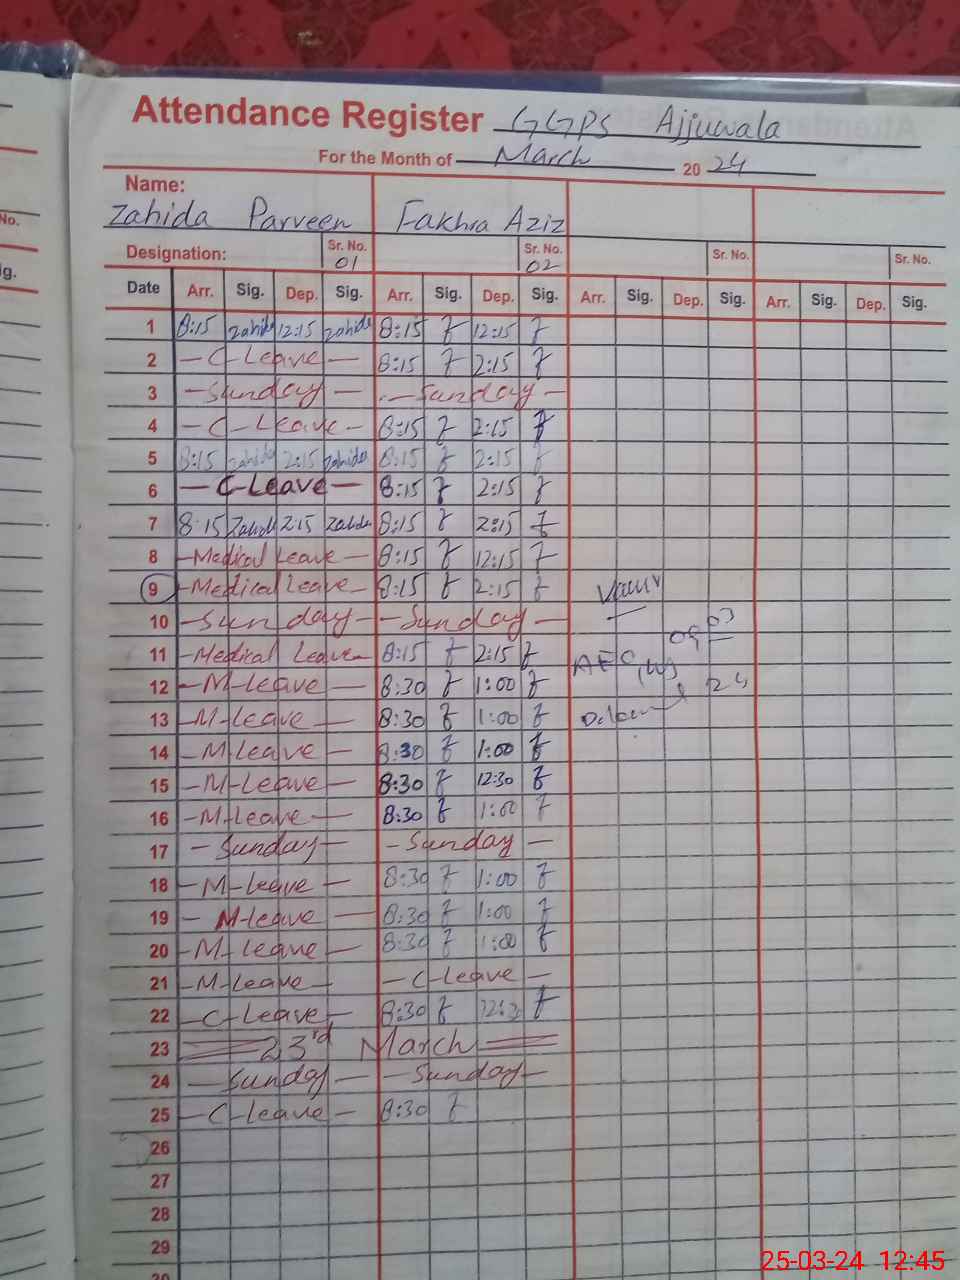 Attendance Register GGPS Ajjuwala
For the Month of March 2024
Name:
Zahida Parveen Fakhra Aziz
Designation: Sr. No. 01 Sr. No. 02 Sr. No. Sr. No.
Date Arr. Sig. Dep. Sig. Arr. Sig. Dep. Sig. Arr. Sig. Dep. Sig. Arr. Sig. Dep. Sig.
1 8:15 Zahida 12:15 Zahida 8:15 F 12:15 F
2 - C-Leave - 8:15 F 2:15 F
3 - Sunday - - Sunday -
4 - C-Leave - 8:15 F 2:15 F
5 8:15 Zahida 2:15 Zahida 8:15 F 2:15 F
6 - C-Leave - 8:15 F 2:15 F
7 8:15 Zahida 2:15 Zahida 8:15 F 2:15 F
8 - Medical Leave - 8:15 F 12:15 F
9 - Medical Leave - 8:15 F 2:15 F
10 - Sunday - - Sunday -
09 03
11 - Medical Leave - 8:15 F 2:15 F AEO (W)
12 - M-Leave - 8:30 F 1:00 F 24
13 - M-Leave - 8:30 F 1:00 F
14 - M-Leave - 8:30 F 1:00 F
15 - M-Leave - 8:30 F 12:30 F
16 - M-Leave - 8:30 F 1:00 F
17 - Sunday - - Sunday -
18 - M-Leave - 8:30 F 1:00 F
19 - M-Leave - 8:30 F 1:00 F
20 - M-Leave - 8:30 F 1:00 F
21 - M-Leave - - C-Leave -
22 - C-Leave - 8:30 F 12:30 F
23 23rd March
24 - Sunday - - Sunday -
25 - C-Leave - 8:30 F
26
27
28
29
30
25-03-24 12:45